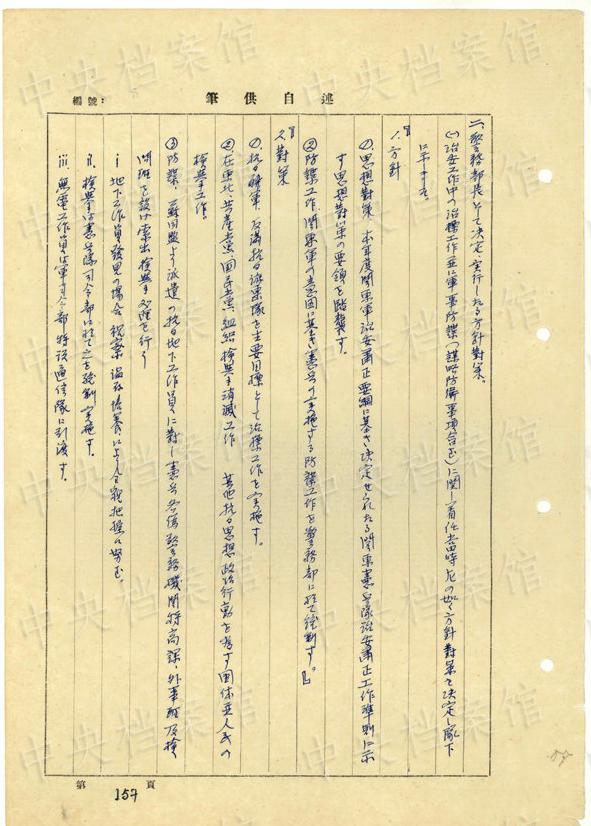 編號:
筆供自述
二、警務部長として決定、実行したる方針対策。
(一)治安工作中の治標工作並に軍事防諜(謀略防衛事項含む)に関し着任当時左の如く方針対策を決定し家下
に示す
『
1. 方針
①思想対策、本年度関東軍治安粛正要綱に基き決定せられたる関東憲兵隊治安粛正工作準則に示
す思想対策の要領を踏襲す。
②防諜工作、関東軍の意図に基き憲兵の実施する防諜工作を警務部に於て統制す。』
『
2. 対策
①抗日聯軍、反満抗日派衆隊を主要目標として治標工作を実施す。
②在東北、共産党、国民党、組織検挙消滅工作 其他抗日思想、政治行動を為す団体並人民の
検挙工作。
③防諜、蘇同盟より派遣の抗日地下工作員に対し憲兵各隊警務機関特高課、外事班及検
閲班を設け索出検挙処理を行う
i 地下工作員発見の場合 偵察 温存培養により全貌把握に努む。
ii 検挙は憲兵隊司令部に於て之を統制実施す。
iii 無電工作員は軍司令部特設通信隊に引渡す。
第 157 頁
中央档案馆